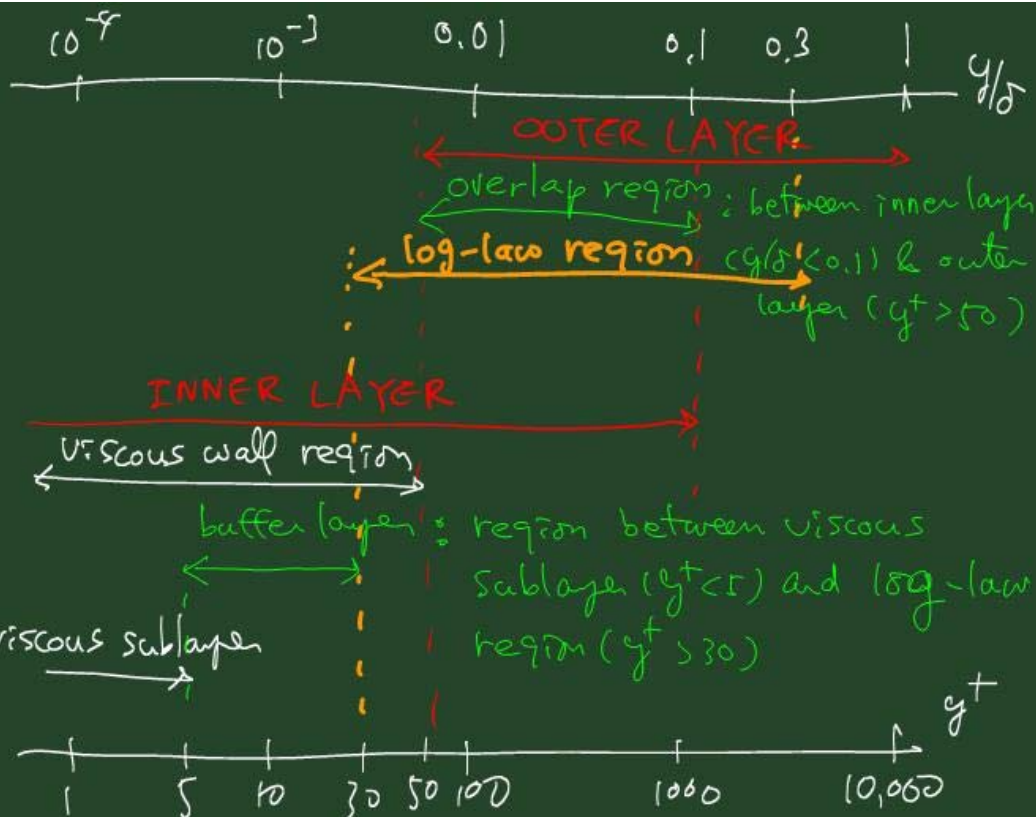 10⁻⁴ 10⁻³ 0.01 0.1 0.3 1 y/δ
OUTER LAYER
overlap region : between inner layer
(y/δ<0.1) & outer
layer (y⁺>50)
log-law region
INNER LAYER
viscous wall region
buffer layer : region between viscous
sublayer (y⁺<5) and log-law
region (y⁺>30)
viscous sublayer
y⁺
1 5 10 30 50 100 1000 10,000